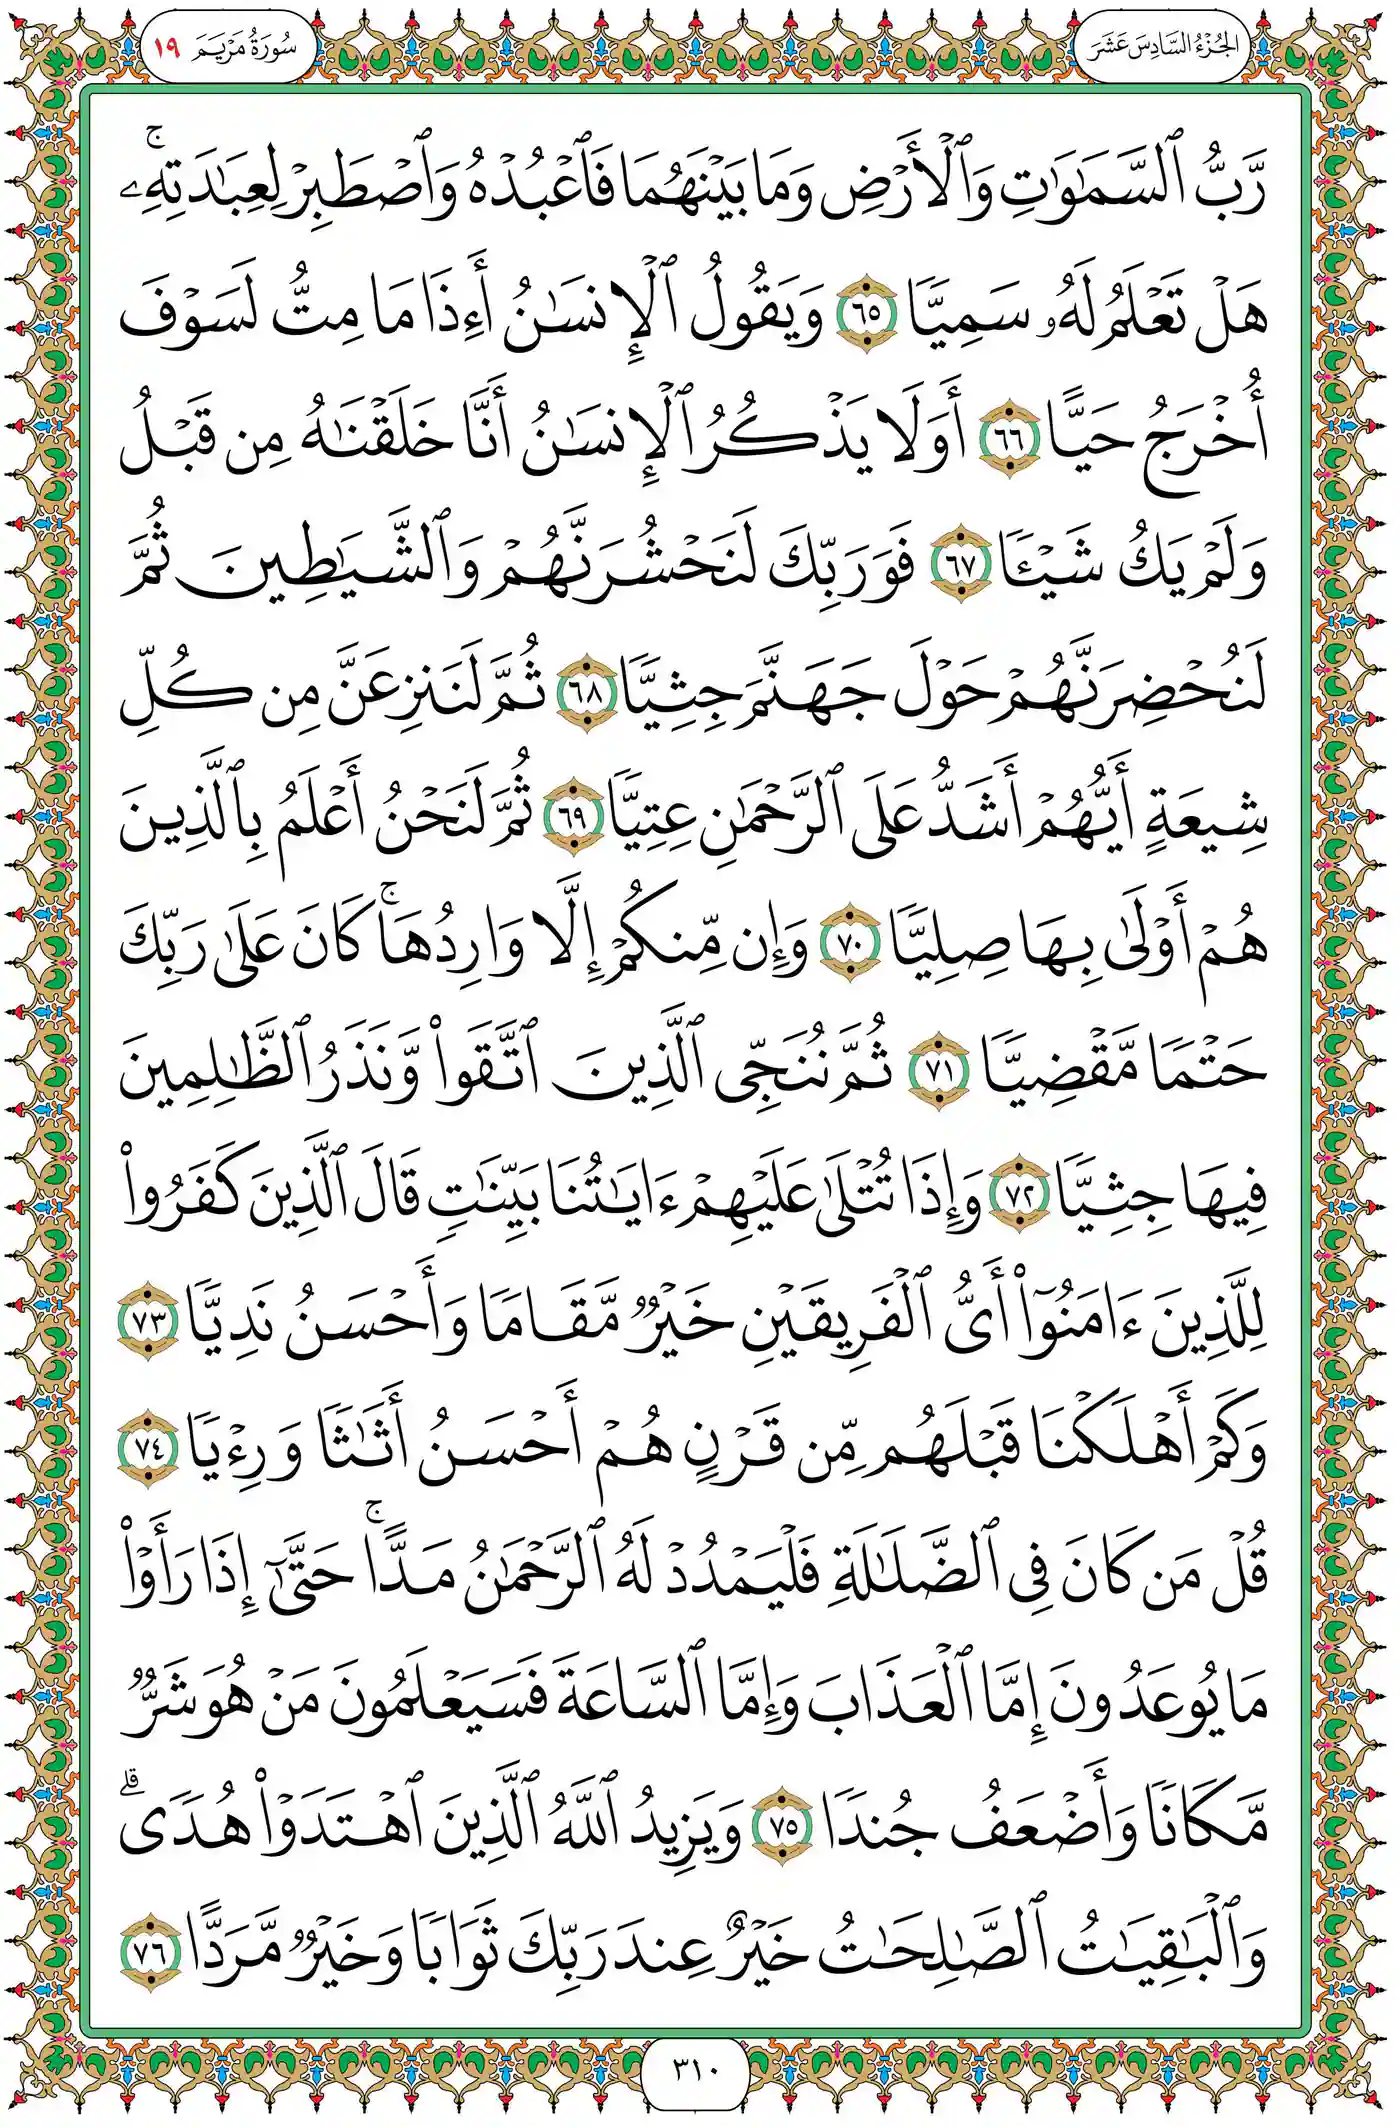 الجُزْءُ السَّادِسَ عَشَرَ
سُورَةُ مَرْيَمَ ١٩
رَّبُّ ٱلسَّمَٰوَٰتِ وَٱلۡأَرۡضِ وَمَا بَيۡنَهُمَا فَٱعۡبُدۡهُ وَٱصۡطَبِرۡ لِعِبَٰدَتِهِۦۚ
هَلۡ تَعۡلَمُ لَهُۥ سَمِيّٗا ٦٥ وَيَقُولُ ٱلۡإِنسَٰنُ أَءِذَا مَا مِتُّ لَسَوۡفَ
أُخۡرَجُ حَيًّا ٦٦ أَوَلَا يَذۡكُرُ ٱلۡإِنسَٰنُ أَنَّا خَلَقۡنَٰهُ مِن قَبۡلُ
وَلَمۡ يَكُ شَيۡـٔٗا ٦٧ فَوَرَبِّكَ لَنَحۡشُرَنَّهُمۡ وَٱلشَّيَٰطِينَ ثُمَّ
لَنُحۡضِرَنَّهُمۡ حَوۡلَ جَهَنَّمَ جِثِيّٗا ٦٨ ثُمَّ لَنَنزِعَنَّ مِن كُلِّ
شِيعَةٍ أَيُّهُمۡ أَشَدُّ عَلَى ٱلرَّحۡمَٰنِ عِتِيّٗا ٦٩ ثُمَّ لَنَحۡنُ أَعۡلَمُ بِٱلَّذِينَ
هُمۡ أَوۡلَىٰ بِهَا صِلِيّٗا ٧٠ وَإِن مِّنكُمۡ إِلَّا وَارِدُهَاۚ كَانَ عَلَىٰ رَبِّكَ
حَتۡمٗا مَّقۡضِيّٗا ٧١ ثُمَّ نُنَجِّي ٱلَّذِينَ ٱتَّقَواْ وَّنَذَرُ ٱلظَّٰلِمِينَ
فِيهَا جِثِيّٗا ٧٢ وَإِذَا تُتۡلَىٰ عَلَيۡهِمۡ ءَايَٰتُنَا بَيِّنَٰتٖ قَالَ ٱلَّذِينَ كَفَرُواْ
لِلَّذِينَ ءَامَنُوٓاْ أَيُّ ٱلۡفَرِيقَيۡنِ خَيۡرٞ مَّقَامٗا وَأَحۡسَنُ نَدِيّٗا ٧٣
وَكَمۡ أَهۡلَكۡنَا قَبۡلَهُم مِّن قَرۡنٍ هُمۡ أَحۡسَنُ أَثَٰثٗا وَرِءۡيٗا ٧٤
قُلۡ مَن كَانَ فِي ٱلضَّلَٰلَةِ فَلۡيَمۡدُدۡ لَهُ ٱلرَّحۡمَٰنُ مَدًّاۚ حَتَّىٰٓ إِذَا رَأَوۡاْ
مَا يُوعَدُونَ إِمَّا ٱلۡعَذَابَ وَإِمَّا ٱلسَّاعَةَ فَسَيَعۡلَمُونَ مَنۡ هُوَ شَرّٞ
مَّكَانٗا وَأَضۡعَفُ جُندٗا ٧٥ وَيَزِيدُ ٱللَّهُ ٱلَّذِينَ ٱهۡتَدَوۡاْ هُدٗىۗ
وَٱلۡبَٰقِيَٰتُ ٱلصَّٰلِحَٰتُ خَيۡرٌ عِندَ رَبِّكَ ثَوَابٗا وَخَيۡرٞ مَّرَدًّا ٧٦
٣١٠